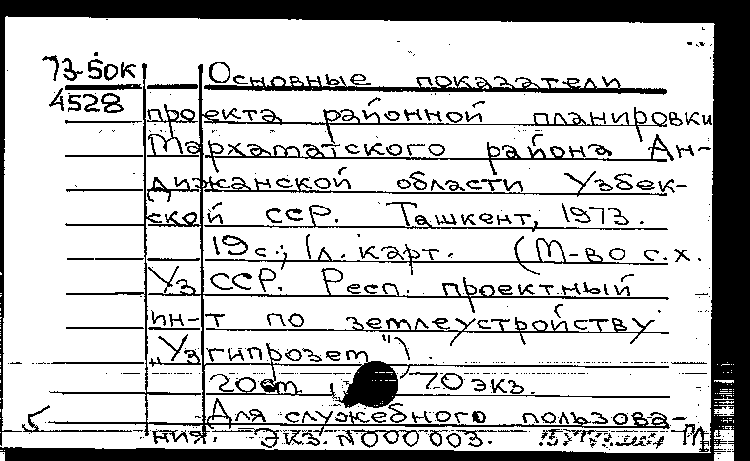 73-50к Основные показатели
4528 проекта районной планировки
Мархаматского района Ан-
дижанской области Узбек-
ской ССР. Ташкент, 1973.
19 с.; 1 л. карт. (М-во с.х.
Уз ССР. Респ. проектный
ин-т по землеустройству
"Узгипрозем").
20 см. 70 экз.
Для служебного пользова-
ния. Экз. N000003.